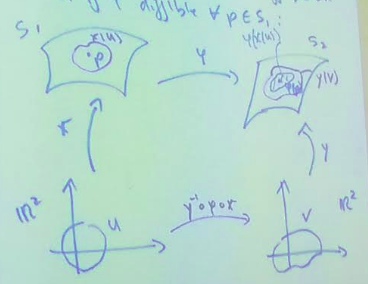 diffible ∀ p ∈ S₁ :
S₁
x(u)
p
φ
φ(x(u))
S₂
y(V)
x
y
ℝ²
u
y⁻¹∘φ∘x
V
ℝ²